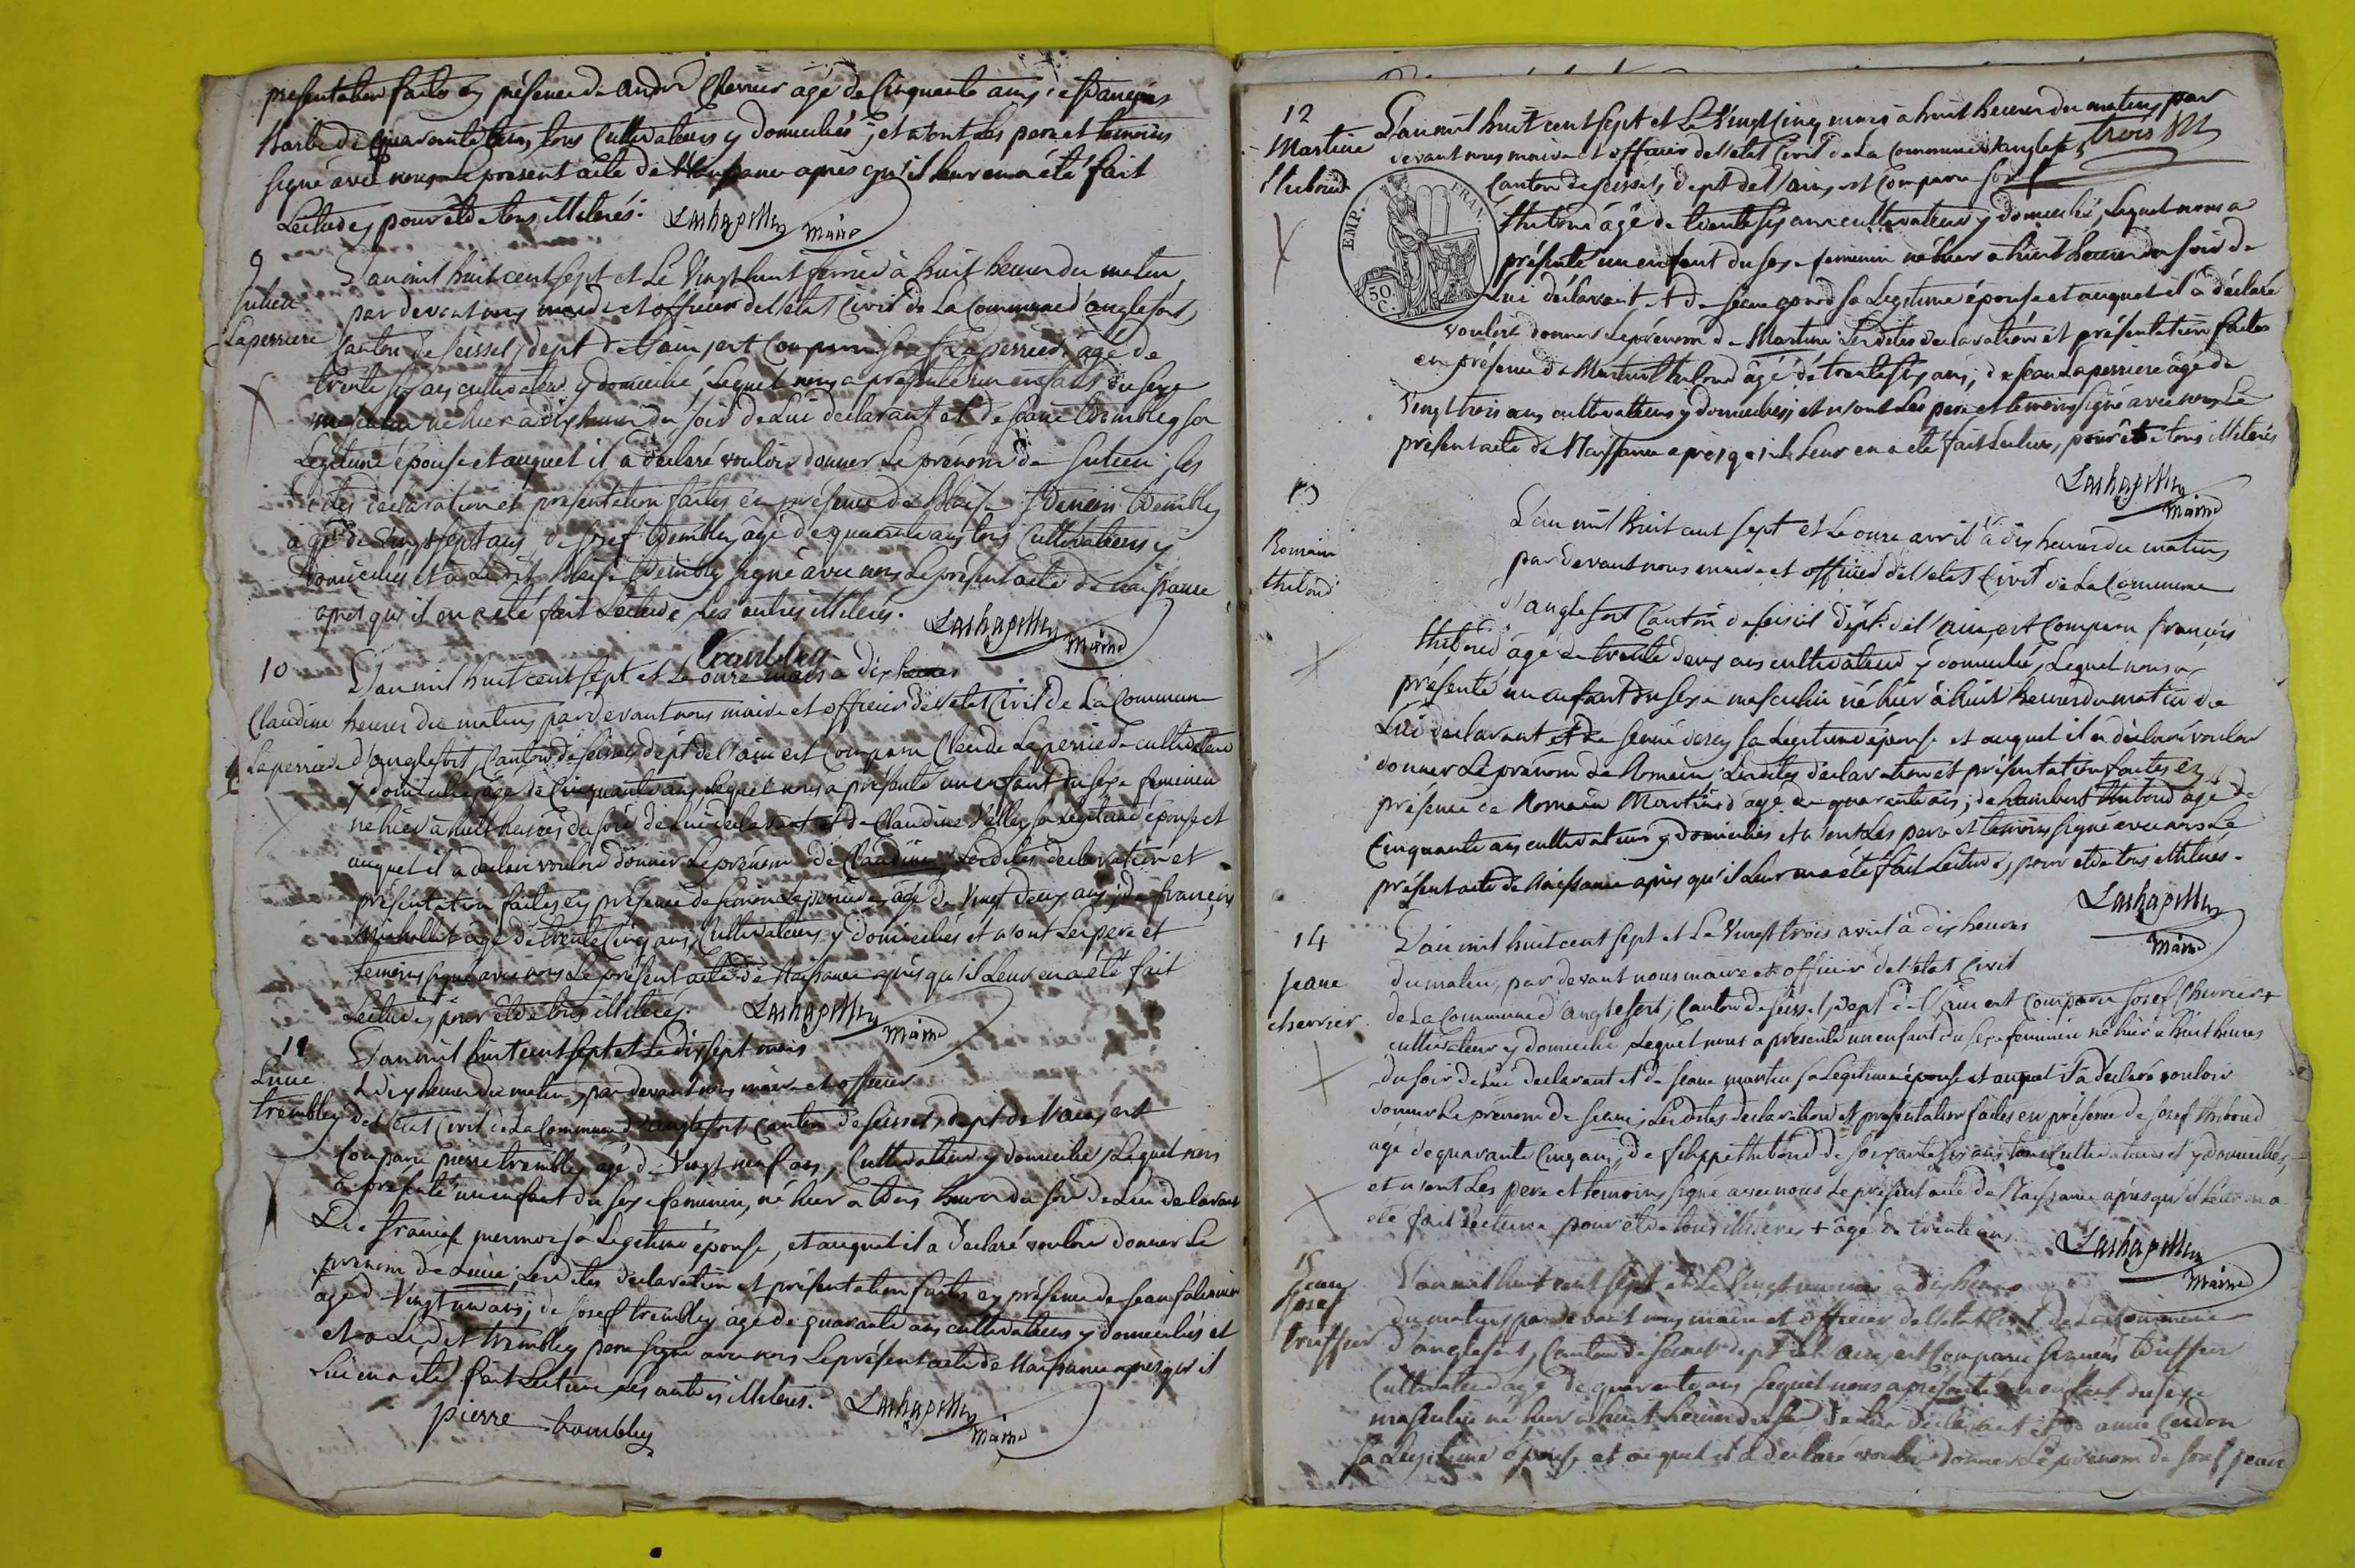 presentation faite en présence de andré Chevrier agé de Cinquante ans, et françois
Barbe de quarante ans, tous Cultivateurs y domiciliés; et n'ont les pere et temoins
signé avec nous le present acte de Naissance après qu'il leur en a été fait
Lecture, pour être tous illiterés.
Lachapelle Maire
9
Julien
Laperriere
L'an mil huit cent sept et Le Vingt huit fevrier à huit heures du matin,
par devant nous maire et officier de l'état Civil de La Commune d'anglefort,
Canton de seissel, dept de l'ain, est Comparu Josef Laperriere agé de
trente six ans cultivateur y domicilié, Lequel nous a presenté un enfant du sexe
masculin né hier a dix heures du soir de Lui declarant et de Jeane trembley sa
Legitime épouse et auquel il a déclaré vouloir donner Le prénom de Julien; les
dites declaration et presentation faites en présence de Blaise trembley
agé de vingt sept ans, de Josef trembley agé de quarante ans tous Cultivateurs y
domiciliés et a Le dit Blaise trembley signé avec nous Le présent acte de naissance
après qu'il en a été fait Lecture les autres illiterés.
Lachapelle Maire
trambley
10
Claudine
Laperriere
L'an mil huit cent sept et Le onze mars à dix heures
heures du matin, par devant nous maire et officier de l'état Civil de La Commune
d'anglefort, Canton de seissel, dept de l'ain est Comparu Claude Laperriere cultivateur
y domicilié, agé de Cinquante ans Lequel nous a présenté un enfant du sexe feminin
né hier à huit heures du soir de Lui declarant et de Claudine Vellet sa Legitime épouse et
auquel il a declaré vouloir donner Le prénom de Claudine; Les dites declaration et
présentation faites en présence de Simon Laperriere agé de Vingt deux ans; de françois
Michellet agé de trente Cinq ans, Cultivateurs y domiciliés et n'ont Les pere et
temoins signé avec nous Le présent acte de Naissance après qu'il Leur en a été fait
Lecture, pour être tous illiterés.
Lachapelle Maire
11
Lucie
trembley
L'an mil huit cent sept et Le dix sept mars
à dix heures du matin, par devant nous maire et officier
de l'état Civil de La Commune d'anglefort, Canton de seissel, dept de l'ain, est
Comparu pierre trembley agé de Vingt neuf ans, Cultivateur y domicilié, Lequel nous
a présenté un enfant du sexe feminin, né hier a trois heures du soir de Lui declarant
et de francoise mermoz sa Legitime épouse, et auquel il a declaré vouloir donner Le
prénom de Lucie; Les dites declaration et présentation faites en présence de Jean
agé de Vingt un ans; de Josef trembley agé de quarante ans cultivateurs y domiciliés et
et a Le dit trembley pere signé avec nous Le présent acte de Naissance après qu'il
Lui en a été fait Lecture les autres illiterés.
pierre trambley
Lachapelle Maire
12
Martine
thiboud
EMP. FRAN.
50 C.
L'an mil huit cent sept et Le Vingt Cinq mars à huit heures du matin, par
devant nous maire et officier de l'état Civil de La Commune d'anglefort,
trois
Canton de seissel, dept de l'ain, est Comparu Josef
thiboud agé de trente six ans cultivateur y domicilié, Lequel nous a
présenté un enfant du sexe feminin né hier à huit heures du soir de
Lui déclarant et de Jeane sa Legitime épouse et auquel il a déclaré
vouloir donner Le prénom de Martine Les dites declaration et présentation faites
en présence de Martin thiboud agé de trente six ans; de Jean Laperriere agé de
vingt trois ans cultivateurs y domiciliés et n'ont Les pere et temoins signé avec nous Le
présent acte de Naissance après qu'il Leur en a été fait Lecture, pour être tous illiterés
Lachapelle Maire
13
Romain
thiboud
L'an mil huit cent sept et Le onze avril à dix heures du matin,
par devant nous maire et officier de l'état Civil de La Commune
d'anglefort Canton de seissel dépt. de l'ain, est Comparu françois
thiboud agé de trente deux ans cultivateur y domicilié, Lequel nous a
présenté un enfant du sexe masculin né hier à huit heures du matin de
Lui declarant et de sa Legitime épouse et auquel il a déclaré vouloir
donner Le prénom de Romain, Les dites déclaration et présentation faites en
présence de Romain Martin agé de quarante ans; de humbert thiboud agé de
Cinquante ans cultivateurs y domiciliés et n'ont Les pere et temoins signé avec nous Le
présent acte de Naissance après qu'il Leur en a été fait Lecture, pour être tous illiterés.
Lachapelle
Maire
14
Jeane
chevrier
L'an mil huit cent sept et Le Vingt trois avril à dix heures
du matin, par devant nous maire et officier de l'état Civil
de La Commune d'anglefort, Canton de seissel, dept de l'ain est Comparu Josef Chevrier +
cultivateur y domicilié, Lequel nous a présenté un enfant du sexe feminin né hier a huit heures
du soir de Lui declarant et de Jeane martin sa Legitime épouse et auquel il a déclaré vouloir
donner Le prénom de Jeane; Les dites declaration et présentation faites en présence de Josef thiboud
agé de quarante Cinq ans, de philippe thiboud de soixante six ans tous Cultivateurs et y domiciliés,
et n'ont Les pere et temoins signé avec nous Le présent acte de Naissance après qu'il Leur en a
été fait Lecture pour être tous illiterés + agé de trente ans
Lachapelle
Maire
15
Jean
Josef
truffer
L'an mil huit cent sept et Le Vingt un mai à dix heures
du matin, par devant nous maire et officier de l'état Civil de La Commune
d'anglefort, Canton de seissel dept de l'ain, est Comparu françois truffer
Cultivateur agé de quarante ans Lequel nous a présenté un enfant du sexe
masculin né hier a huit heures du soir de Lui déclarant et de anne Cerdon
sa Legitime épouse et auquel il a declaré vouloir donner Le prénom de Josef Jean